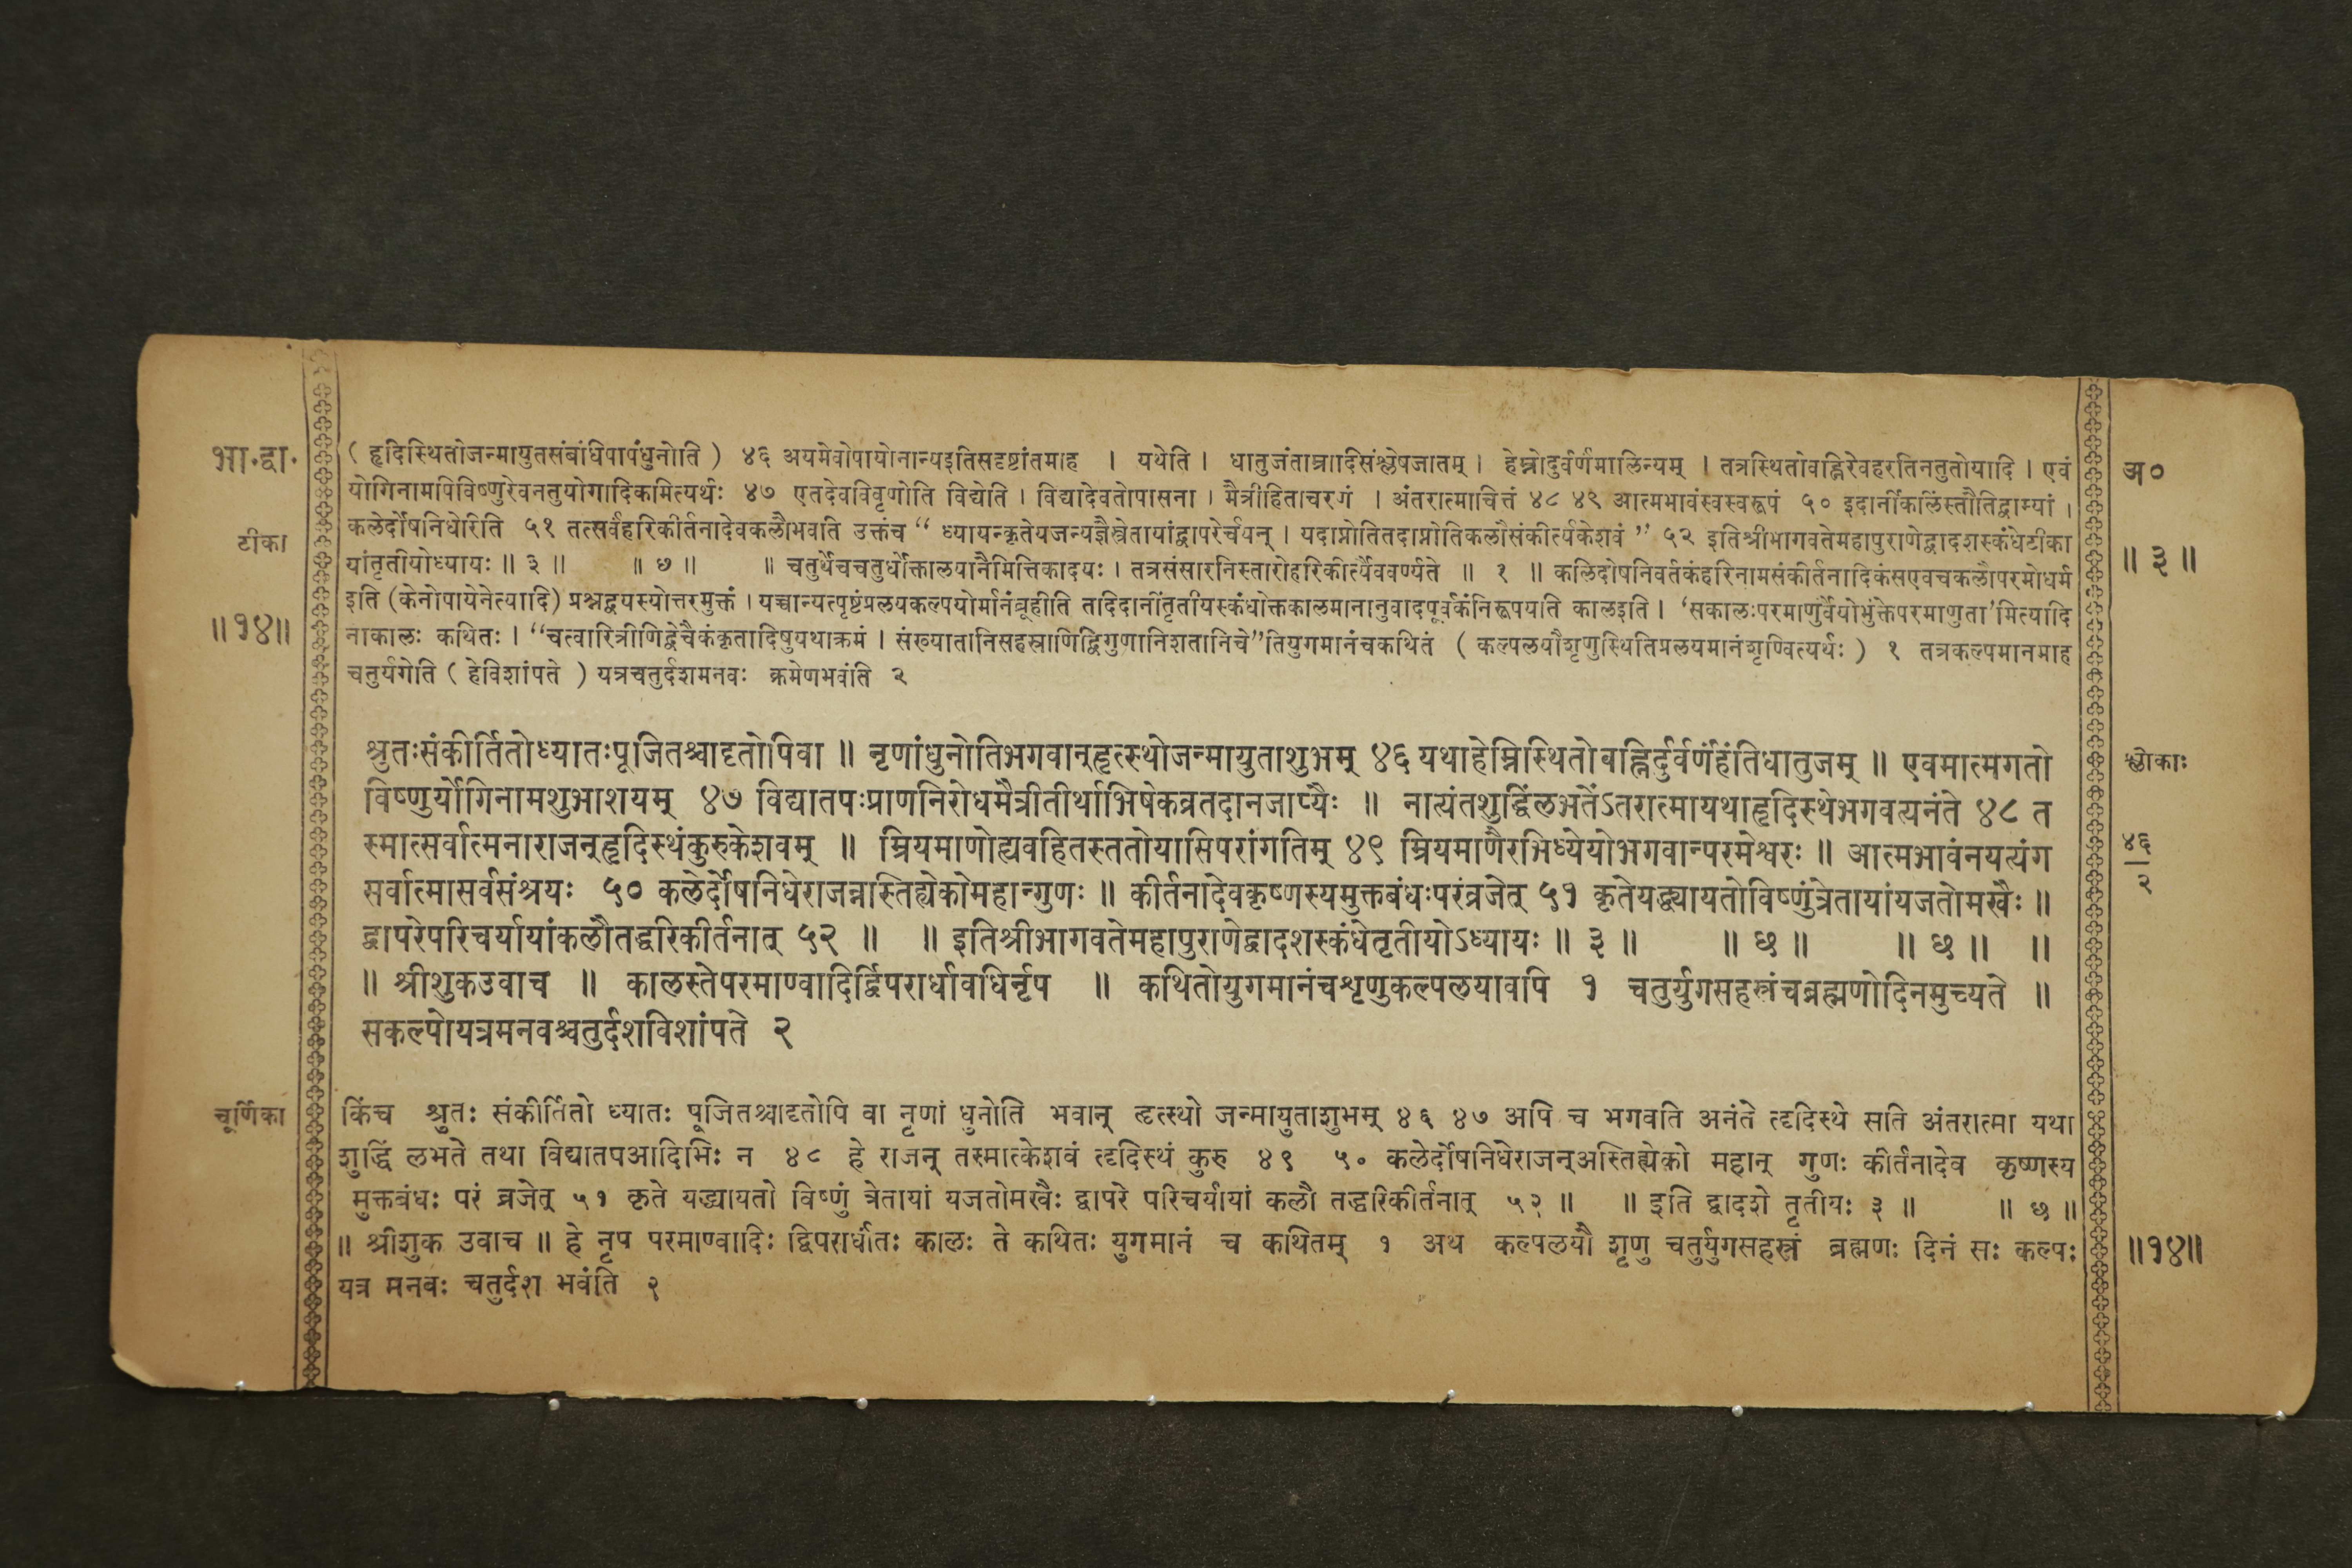 भा.द्वा.
टीका
॥१४॥
( हृदिस्थितोजन्मायुतसंबंधिपापंधुनोति ) ४६ अयमेवोपायोनान्यइतिसदृष्टांतमाह । यथेति । धातुजंताम्रादिसंश्लेषजातम् । हेम्नोदुर्वर्णंमालिन्यम् । तत्रस्थितोवह्निरेवहरतिनतुतोयादि । एवं
योगिनामपिविष्णुरेवनतुयोगादिकमित्यर्थः ४७ एतदेवविवृणोति विद्येति । विद्यादेवतोपासना । मैत्रीहिताचरणं । अंतरात्माचित्तं ४८ ४९ आत्मभावंस्वस्वरूपं ५० इदानींकलिंस्तौतिद्वाभ्यां ।
कलेर्दोषनिधेरिति ५१ तत्सर्वंहरिकीर्तनादेवकलौभवति उक्तंच “ ध्यायन्कृतेयजन्यज्ञैस्त्रेतायांद्वापरेर्चयन् । यदाप्नोतितदाप्नोतिकलौसंकीर्त्यकेशवं ” ५२ इतिश्रीभागवतेमहापुराणेद्वादशस्कंधेटीका
यांतृतीयोध्यायः ॥ ३ ॥ ॥ ७ ॥ ॥ चतुर्थेचचतुर्धोक्तालयानैमित्तिकादयः । तत्रसंसारनिस्तारोहरिकीर्त्यैववर्ण्यते ॥ १ ॥ कलिदोषनिवर्तकंहरिनामसंकीर्तनादिकंसएवचकलौपरमोधर्म
इति (केनोपायेनेत्यादि) प्रश्नद्वयस्योत्तरमुक्तं । यच्चान्यत्पृष्टंप्रलयकल्पयोर्मानंब्रूहीति तदिदानींतृतीयस्कंधोक्तकालमानानुवादपूर्वकंनिरूपयति कालइति । ‘सकालःपरमाणुर्वैयोभुंक्तेपरमाणुता’मित्यादि
नाकालः कथितः । “चत्वारित्रीणिद्वेचैकंकृतादिषुयथाक्रमं । संख्यातानिसहस्राणिद्विगुणानिशतानिचे”तियुगमानंचकथितं ( कल्पलयौशृणुस्थितिप्रलयमानंशृण्वित्यर्थः ) १ तत्रकल्पमानमाह
चतुर्यगेति ( हेविशांपते ) यत्रचतुर्दशमनवः क्रमेणभवंति २
अ०
॥ ३ ॥
श्रुतःसंकीर्तितोध्यातःपूजितश्चादृतोपिवा ॥ नृणांधुनोतिभगवान्हृत्स्थोजन्मायुताशुभम् ४६ यथाहेम्निस्थितोवह्निर्दुर्वर्णंहंतिधातुजम् ॥ एवमात्मगतो
विष्णुर्योगिनामशुभाशयम् ४७ विद्यातपःप्राणनिरोधमैत्रीतीर्थाभिषेकव्रतदानजाप्यैः ॥ नात्यंतशुद्धिंलभतेंऽतरात्मायथाहृदिस्थेभगवत्यनंते ४८ त
स्मात्सर्वात्मनाराजन्हृदिस्थंकुरुकेशवम् ॥ म्रियमाणोह्यवहितस्ततोयासिपरांगतिम् ४९ म्रियमाणैरभिध्येयोभगवान्परमेश्वरः ॥ आत्मभावंनयत्यंग
सर्वात्मासर्वसंश्रयः ५० कलेर्दोषनिधेराजन्नास्तिह्येकोमहान्गुणः ॥ कीर्तनादेवकृष्णस्यमुक्तबंधःपरंव्रजेत् ५१ कृतेयद्ध्यायतोविष्णुंत्रेतायांयजतोमखैः ॥
द्वापरेपरिचर्यायांकलौतद्धरिकीर्तनात् ५२ ॥ ॥ इतिश्रीभागवतेमहापुराणेद्वादशस्कंधेतृतीयोऽध्यायः ॥ ३ ॥ ॥ छ ॥ ॥ छ ॥ ॥
॥ श्रीशुकउवाच ॥ कालस्तेपरमाण्वादिर्द्विपरार्धावधिर्नृप ॥ कथितोयुगमानंचशृणुकल्पलयावपि १ चतुर्युगसहस्रंचब्रह्मणोदिनमुच्यते ॥
सकल्पोयत्रमनवश्चतुर्दशविशांपते २
श्लोकाः
४६
२
चूर्णिका
किंच श्रुतः संकीर्तितो ध्यातः पूजितश्चादृतोपि वा नृणां धुनोति भवान् हृत्स्थो जन्मायुताशुभम् ४६ ४७ अपि च भगवति अनंते हृदिस्थे सति अंतरात्मा यथा
शुद्धिं लभते तथा विद्यातपआदिभिः न ४८ हे राजन् तस्मात्केशवं हृदिस्थं कुरु ४९ ५० कलेर्दोषनिधेराजन्अस्तिह्येको महान् गुणः कीर्तनादेव कृष्णस्य
मुक्तबंधः परं व्रजेत् ५१ कृते यद्ध्यायतो विष्णुं त्रेतायां यजतोमखैः द्वापरे परिचर्यायां कलौ तद्धरिकीर्तनात् ५२ ॥ ॥ इति द्वादशे तृतीयः ३ ॥ ॥ छ ॥
॥ श्रीशुक उवाच ॥ हे नृप परमाण्वादिः द्विपरार्धांतः कालः ते कथितः युगमानं च कथितम् १ अथ कल्पलयौ शृणु चतुर्युगसहस्रं ब्रह्मणः दिनं सः कल्पः
यत्र मनवः चतुर्दश भवंति २
॥१४॥